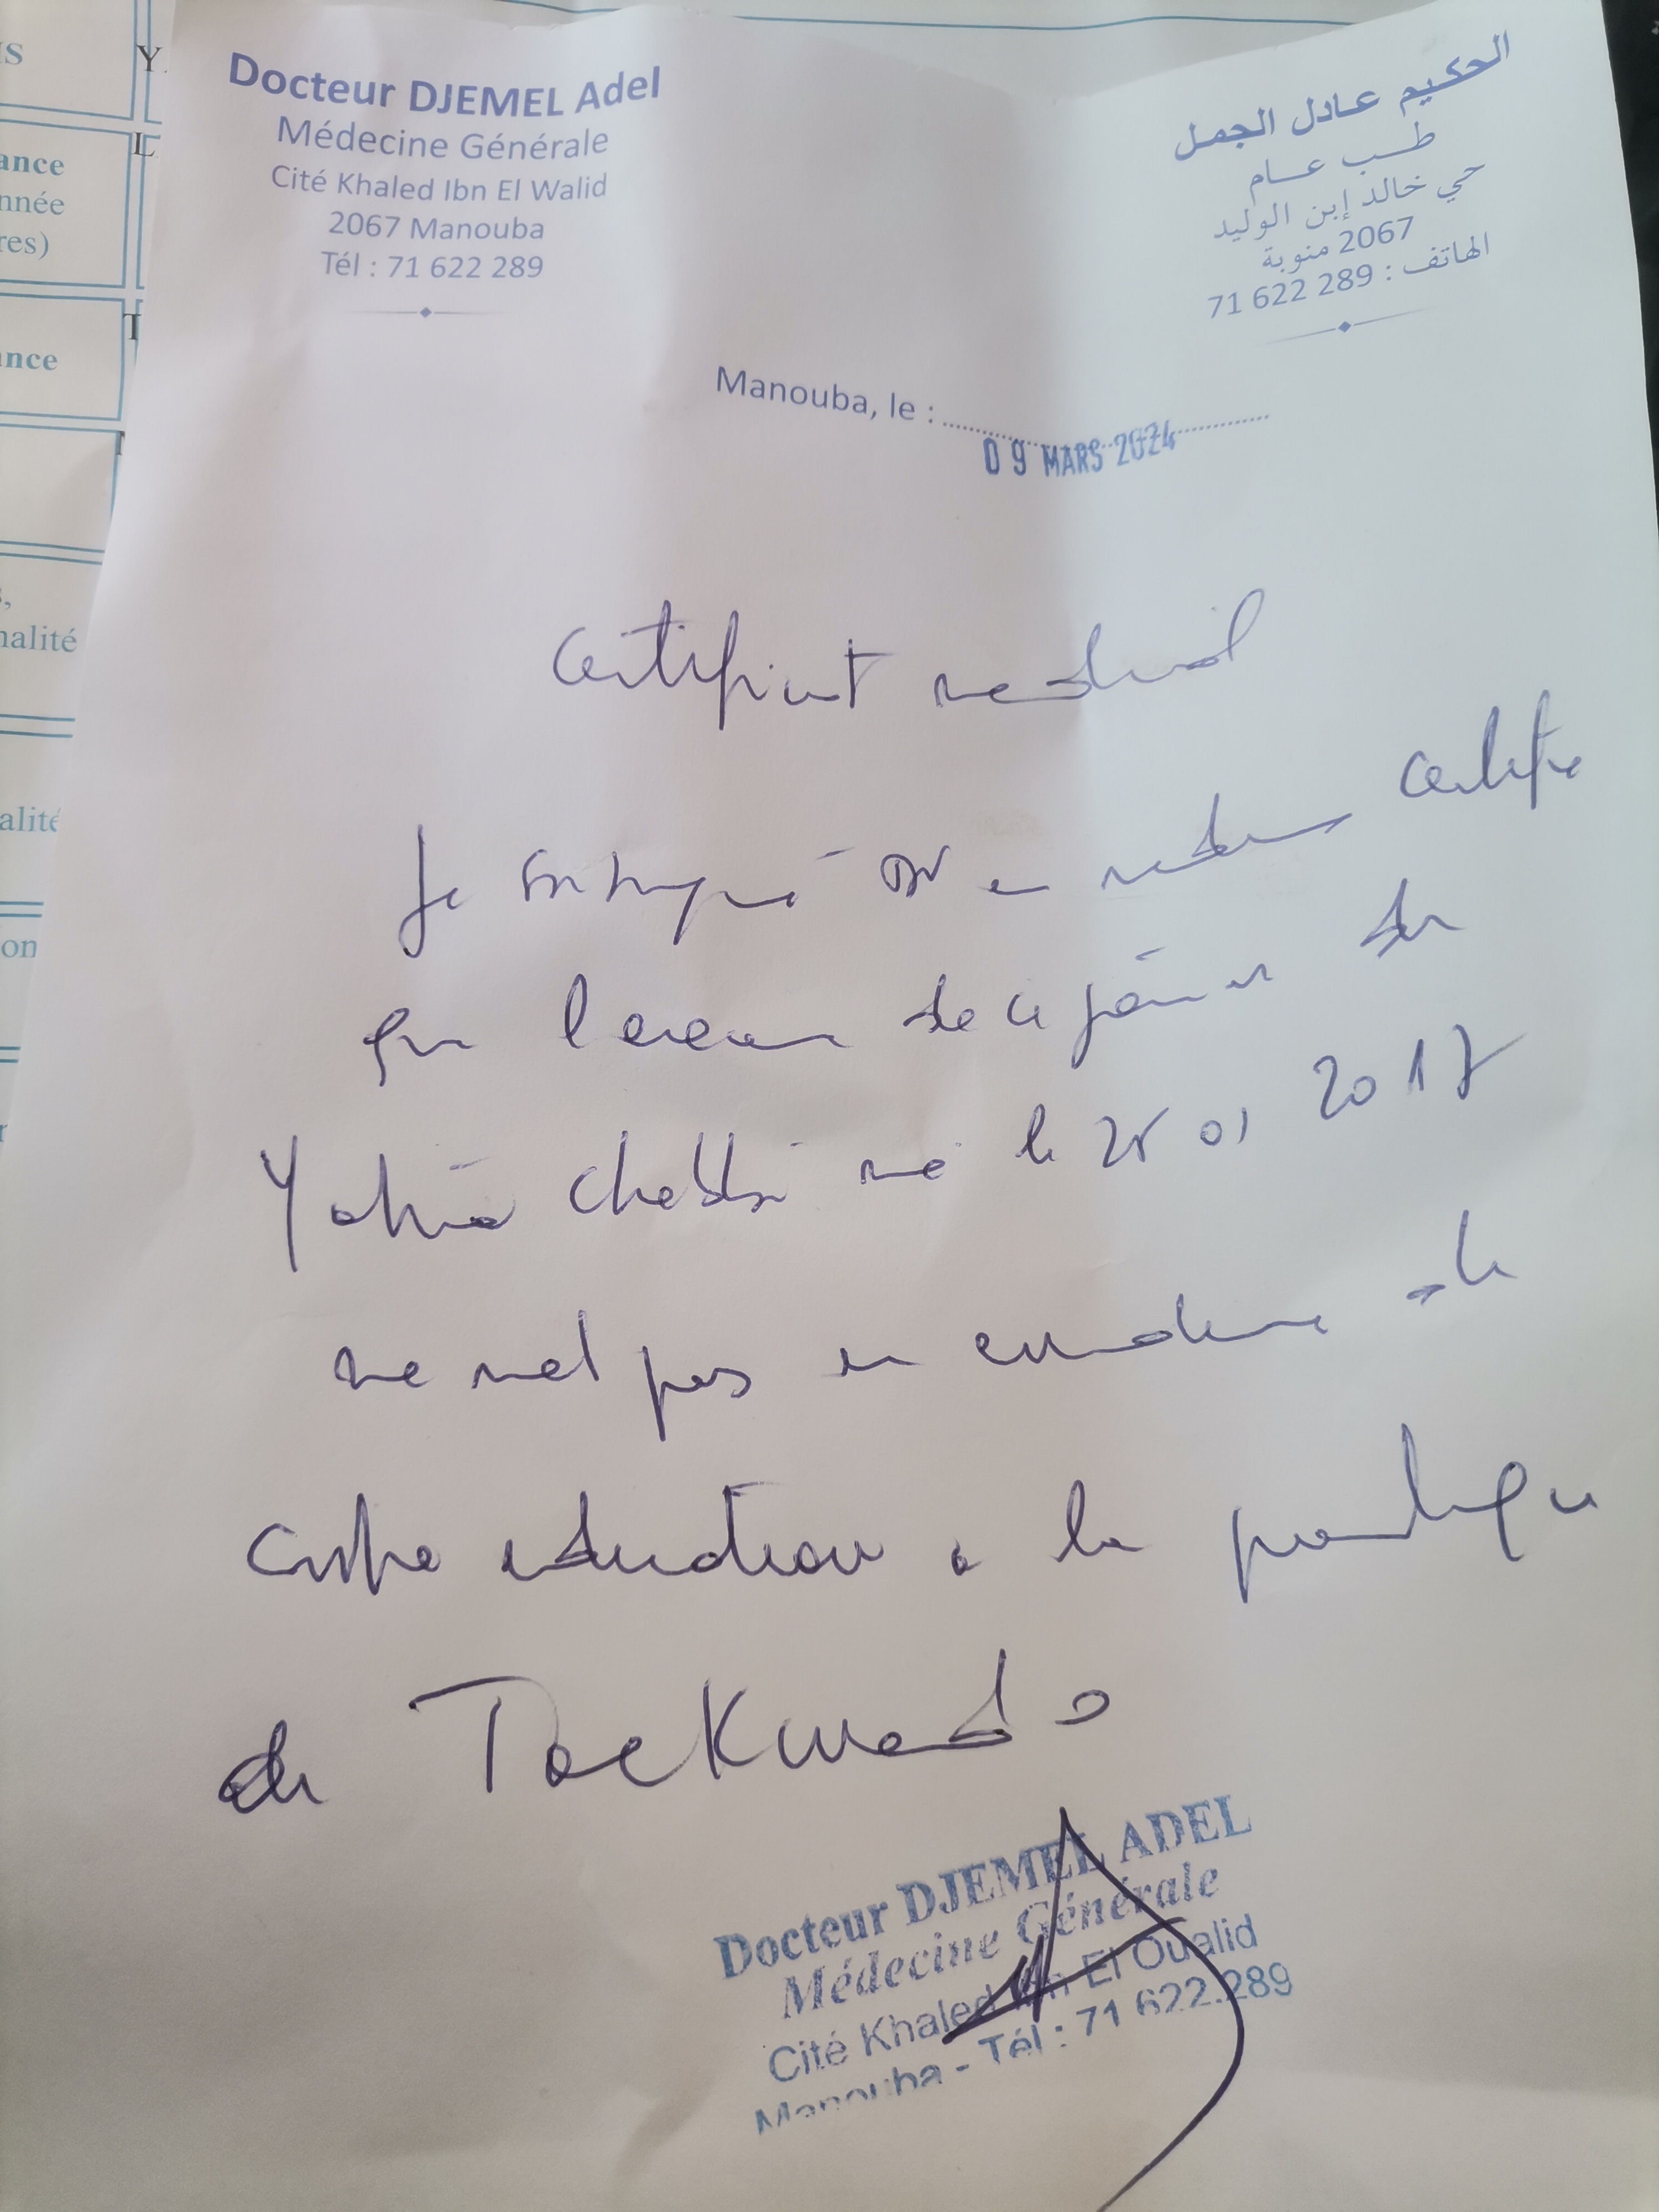 Docteur DJEMEL Adel
Médecine Générale
Cité Khaled Ibn El Walid
2067 Manouba
Tél : 71 622 289
الحكيم عادل الجمل
طب عام
حي خالد إبن الوليد
2067 منوبة
الهاتف : 289 622 71
Manouba, le :
09 MARS 2024
Certificat medical
Je soussigné Dr en medecine certifie
que l'examen de ce jour de
Yahia Chebbi né le 01 2017
ne met pas en evidence de
contre indication a la pratique
de Taekwondo
Docteur DJEMEL ADEL
Médecine Générale
Cité Khaled Ibn El Oualid
Manouba - Tél : 71 622.289
IS
Y.
ance
L
nnée
res)
T
ance
nalité
alité
on